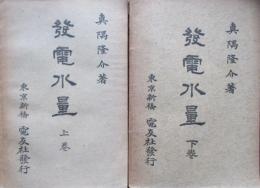 真隅隆介著
發電水量
上卷
東京新橋 電友社發行
真隅隆介著
發電水量
下卷
東京新橋 電友社發行